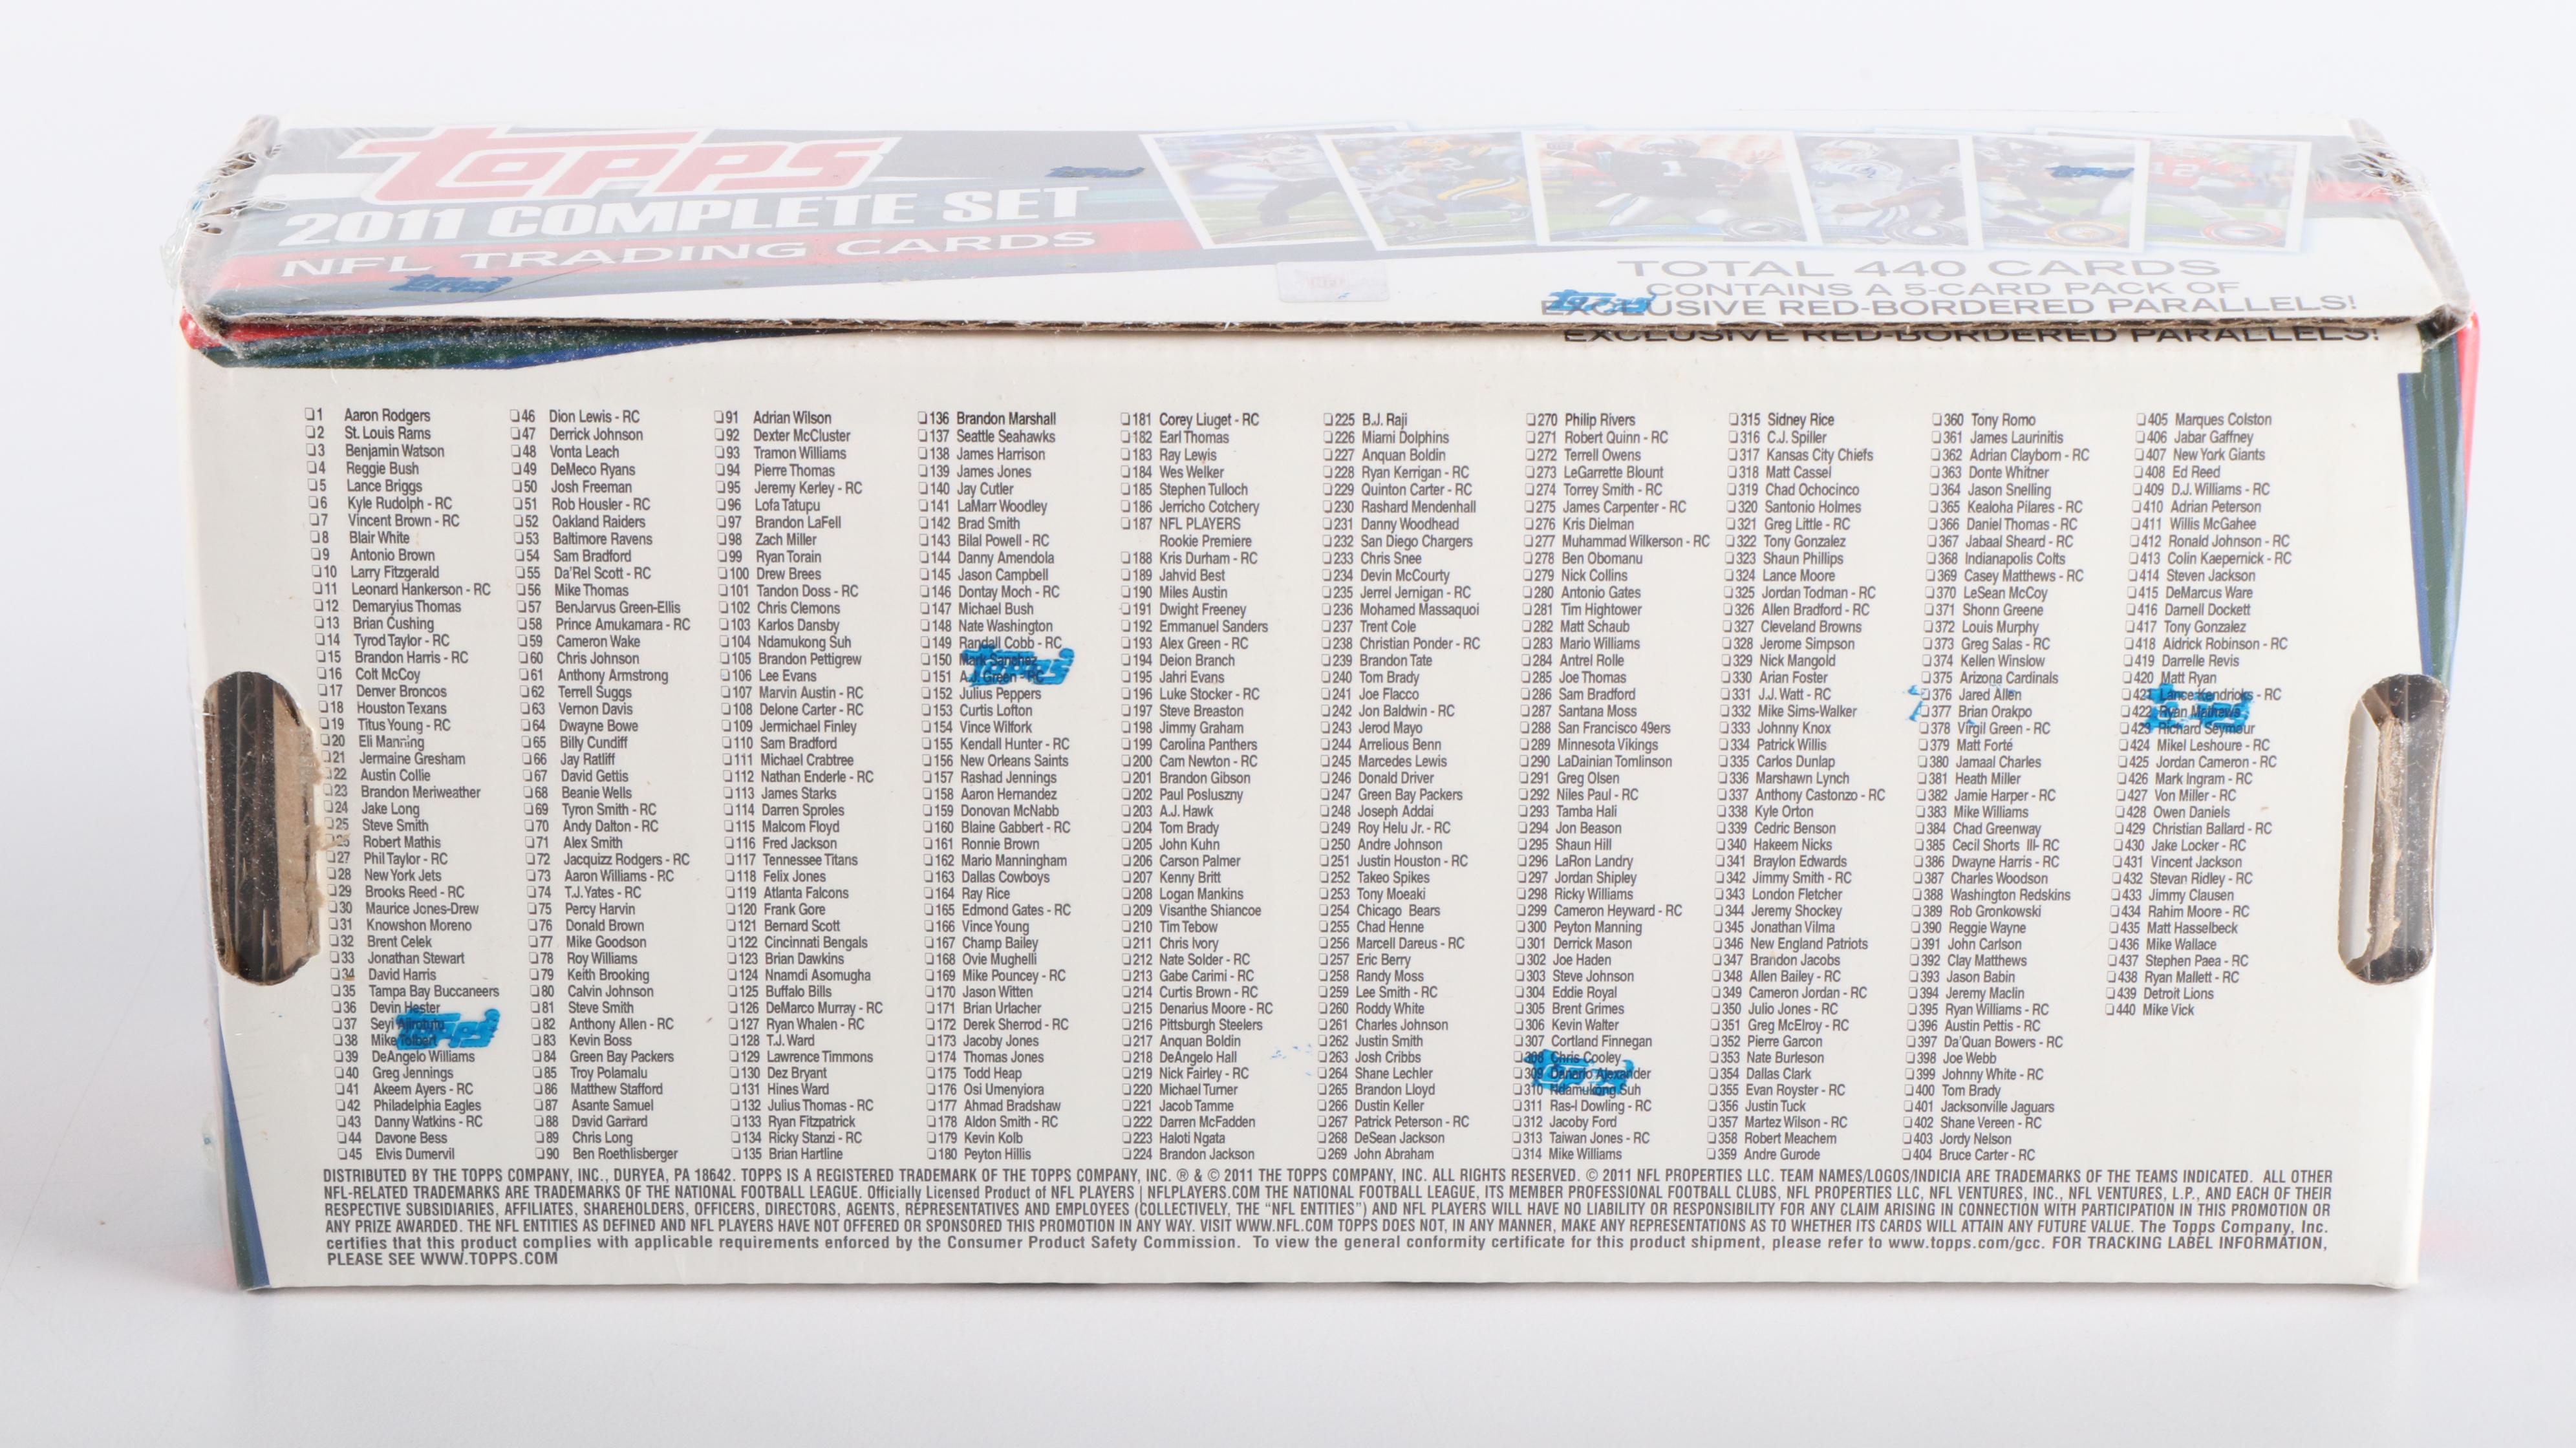 topps
2011 COMPLETE SET
NFL TRADING CARDS
TOTAL 440 CARDS
CONTAINS A 5-CARD PACK OF
EXCLUSIVE RED-BORDERED PARALLELS!
EXCLUSIVE RED-BORDERED PARALLELS!
1 Aaron Rodgers
2 St. Louis Rams
3 Benjamin Watson
4 Reggie Bush
5 Lance Briggs
6 Kyle Rudolph - RC
7 Vincent Brown - RC
8 Blair White
9 Antonio Brown
10 Larry Fitzgerald
11 Leonard Hankerson - RC
12 Demaryius Thomas
13 Brian Cushing
14 Tyrod Taylor - RC
15 Brandon Harris - RC
16 Colt McCoy
17 Denver Broncos
18 Houston Texans
19 Titus Young - RC
20 Eli Manning
21 Jermaine Gresham
22 Austin Collie
23 Brandon Meriweather
24 Jake Long
25 Steve Smith
26 Robert Mathis
27 Phil Taylor - RC
28 New York Jets
29 Brooks Reed - RC
30 Maurice Jones-Drew
31 Knowshon Moreno
32 Brent Celek
33 Jonathan Stewart
34 David Harris
35 Tampa Bay Buccaneers
36 Devin Hester
37 Seyi Ajirotutu
38 Mike Tolbert
39 DeAngelo Williams
40 Greg Jennings
41 Akeem Ayers - RC
42 Philadelphia Eagles
43 Danny Watkins - RC
44 Davone Bess
45 Elvis Dumervil
46 Dion Lewis - RC
47 Derrick Johnson
48 Vonta Leach
49 DeMeco Ryans
50 Josh Freeman
51 Rob Housler - RC
52 Oakland Raiders
53 Baltimore Ravens
54 Sam Bradford
55 Da'Rel Scott - RC
56 Mike Thomas
57 BenJarvus Green-Ellis
58 Prince Amukamara - RC
59 Cameron Wake
60 Chris Johnson
61 Anthony Armstrong
62 Terrell Suggs
63 Vernon Davis
64 Dwayne Bowe
65 Billy Cundiff
66 Jay Ratliff
67 David Gettis
68 Beanie Wells
69 Tyron Smith - RC
70 Andy Dalton - RC
71 Alex Smith
72 Jacquizz Rodgers - RC
73 Aaron Williams - RC
74 T.J. Yates - RC
75 Percy Harvin
76 Donald Brown
77 Mike Goodson
78 Roy Williams
79 Keith Brooking
80 Calvin Johnson
81 Steve Smith
82 Anthony Allen - RC
83 Kevin Boss
84 Green Bay Packers
85 Troy Polamalu
86 Matthew Stafford
87 Asante Samuel
88 David Garrard
89 Chris Long
90 Ben Roethlisberger
91 Adrian Wilson
92 Dexter McCluster
93 Tramon Williams
94 Pierre Thomas
95 Jeremy Kerley - RC
96 Lofa Tatupu
97 Brandon LaFell
98 Zach Miller
99 Ryan Torain
100 Drew Brees
101 Tandon Doss - RC
102 Chris Clemons
103 Karlos Dansby
104 Ndamukong Suh
105 Brandon Pettigrew
106 Lee Evans
107 Marvin Austin - RC
108 Delone Carter - RC
109 Jermichael Finley
110 Sam Bradford
111 Michael Crabtree
112 Nathan Enderle - RC
113 James Starks
114 Darren Sproles
115 Malcom Floyd
116 Fred Jackson
117 Tennessee Titans
118 Felix Jones
119 Atlanta Falcons
120 Frank Gore
121 Bernard Scott
122 Cincinnati Bengals
123 Brian Dawkins
124 Nnamdi Asomugha
125 Buffalo Bills
126 DeMarco Murray - RC
127 Ryan Whalen - RC
128 T.J. Ward
129 Lawrence Timmons
130 Dez Bryant
131 Hines Ward
132 Julius Thomas - RC
133 Ryan Fitzpatrick
134 Ricky Stanzi - RC
135 Brian Hartline
136 Brandon Marshall
137 Seattle Seahawks
138 James Harrison
139 James Jones
140 Jay Cutler
141 LaMarr Woodley
142 Brad Smith
143 Bilal Powell - RC
144 Danny Amendola
145 Jason Campbell
146 Dontay Moch - RC
147 Michael Bush
148 Nate Washington
149 Randall Cobb - RC
150 Mark Sanchez
151 A.J. Green - RC
152 Julius Peppers
153 Curtis Lofton
154 Vince Wilfork
155 Kendall Hunter - RC
156 New Orleans Saints
157 Rashad Jennings
158 Aaron Hernandez
159 Donovan McNabb
160 Blaine Gabbert - RC
161 Ronnie Brown
162 Mario Manningham
163 Dallas Cowboys
164 Ray Rice
165 Edmond Gates - RC
166 Vince Young
167 Champ Bailey
168 Ovie Mughelli
169 Mike Pouncey - RC
170 Jason Witten
171 Brian Urlacher
172 Derek Sherrod - RC
173 Jacoby Jones
174 Thomas Jones
175 Todd Heap
176 Osi Umenyiora
177 Ahmad Bradshaw
178 Aldon Smith - RC
179 Kevin Kolb
180 Peyton Hillis
181 Corey Liuget - RC
182 Earl Thomas
183 Ray Lewis
184 Wes Welker
185 Stephen Tulloch
186 Jerricho Cotchery
187 NFL PLAYERS
Rookie Premiere
188 Kris Durham - RC
189 Jahvid Best
190 Miles Austin
191 Dwight Freeney
192 Emmanuel Sanders
193 Alex Green - RC
194 Deion Branch
195 Jahri Evans
196 Luke Stocker - RC
197 Steve Breaston
198 Jimmy Graham
199 Carolina Panthers
200 Cam Newton - RC
201 Brandon Gibson
202 Paul Posluszny
203 A.J. Hawk
204 Tom Brady
205 John Kuhn
206 Carson Palmer
207 Kenny Britt
208 Logan Mankins
209 Visanthe Shiancoe
210 Tim Tebow
211 Chris Ivory
212 Nate Solder - RC
213 Gabe Carimi - RC
214 Curtis Brown - RC
215 Denarius Moore - RC
216 Pittsburgh Steelers
217 Anquan Boldin
218 DeAngelo Hall
219 Nick Fairley - RC
220 Michael Turner
221 Jacob Tamme
222 Darren McFadden
223 Haloti Ngata
224 Brandon Jackson
225 B.J. Raji
226 Miami Dolphins
227 Anquan Boldin
228 Ryan Kerrigan - RC
229 Quinton Carter - RC
230 Rashard Mendenhall
231 Danny Woodhead
232 San Diego Chargers
233 Chris Snee
234 Devin McCourty
235 Jerrel Jernigan - RC
236 Mohamed Massaquoi
237 Trent Cole
238 Christian Ponder - RC
239 Brandon Tate
240 Tom Brady
241 Joe Flacco
242 Jon Baldwin - RC
243 Jerod Mayo
244 Arrelious Benn
245 Marcedes Lewis
246 Donald Driver
247 Green Bay Packers
248 Joseph Addai
249 Roy Helu Jr. - RC
250 Andre Johnson
251 Justin Houston - RC
252 Takeo Spikes
253 Tony Moeaki
254 Chicago Bears
255 Chad Henne
256 Marcell Dareus - RC
257 Eric Berry
258 Randy Moss
259 Lee Smith - RC
260 Roddy White
261 Charles Johnson
262 Justin Smith
263 Josh Cribbs
264 Shane Lechler
265 Brandon Lloyd
266 Dustin Keller
267 Patrick Peterson - RC
268 DeSean Jackson
269 John Abraham
270 Philip Rivers
271 Robert Quinn - RC
272 Terrell Owens
273 LeGarrette Blount
274 Torrey Smith - RC
275 James Carpenter - RC
276 Kris Dielman
277 Muhammad Wilkerson - RC
278 Ben Obomanu
279 Nick Collins
280 Antonio Gates
281 Tim Hightower
282 Matt Schaub
283 Mario Williams
284 Antrel Rolle
285 Joe Thomas
286 Sam Bradford
287 Santana Moss
288 San Francisco 49ers
289 Minnesota Vikings
290 LaDainian Tomlinson
291 Greg Olsen
292 Niles Paul - RC
293 Tamba Hali
294 Jon Beason
295 Shaun Hill
296 LaRon Landry
297 Jordan Shipley
298 Ricky Williams
299 Cameron Heyward - RC
300 Peyton Manning
301 Derrick Mason
302 Joe Haden
303 Steve Johnson
304 Eddie Royal
305 Brent Grimes
306 Kevin Walter
307 Cortland Finnegan
308 Chris Cooley
309 Danario Alexander
310 Ndamukong Suh
311 Ras-I Dowling - RC
312 Jacoby Ford
313 Taiwan Jones - RC
314 Mike Williams
315 Sidney Rice
316 C.J. Spiller
317 Kansas City Chiefs
318 Matt Cassel
319 Chad Ochocinco
320 Santonio Holmes
321 Greg Little - RC
322 Tony Gonzalez
323 Shaun Phillips
324 Lance Moore
325 Jordan Todman - RC
326 Allen Bradford - RC
327 Cleveland Browns
328 Jerome Simpson
329 Nick Mangold
330 Arian Foster
331 J.J. Watt - RC
332 Mike Sims-Walker
333 Johnny Knox
334 Patrick Willis
335 Carlos Dunlap
336 Marshawn Lynch
337 Anthony Castonzo - RC
338 Kyle Orton
339 Cedric Benson
340 Hakeem Nicks
341 Braylon Edwards
342 Jimmy Smith - RC
343 London Fletcher
344 Jeremy Shockey
345 Jonathan Vilma
346 New England Patriots
347 Brandon Jacobs
348 Allen Bailey - RC
349 Cameron Jordan - RC
350 Julio Jones - RC
351 Greg McElroy - RC
352 Pierre Garcon
353 Nate Burleson
354 Dallas Clark
355 Evan Royster - RC
356 Justin Tuck
357 Martez Wilson - RC
358 Robert Meachem
359 Andre Gurode
360 Tony Romo
361 James Laurinitis
362 Adrian Clayborn - RC
363 Donte Whitner
364 Jason Snelling
365 Kealoha Pilares - RC
366 Daniel Thomas - RC
367 Jabaal Sheard - RC
368 Indianapolis Colts
369 Casey Matthews - RC
370 LeSean McCoy
371 Shonn Greene
372 Louis Murphy
373 Greg Salas - RC
374 Kellen Winslow
375 Arizona Cardinals
376 Jared Allen
377 Brian Orakpo
378 Virgil Green - RC
379 Matt Forté
380 Jamaal Charles
381 Heath Miller
382 Jamie Harper - RC
383 Mike Williams
384 Chad Greenway
385 Cecil Shorts III- RC
386 Dwayne Harris - RC
387 Charles Woodson
388 Washington Redskins
389 Rob Gronkowski
390 Reggie Wayne
391 John Carlson
392 Clay Matthews
393 Jason Babin
394 Jeremy Maclin
395 Ryan Williams - RC
396 Austin Pettis - RC
397 Da'Quan Bowers - RC
398 Joe Webb
399 Johnny White - RC
400 Tom Brady
401 Jacksonville Jaguars
402 Shane Vereen - RC
403 Jordy Nelson
404 Bruce Carter - RC
405 Marques Colston
406 Jabar Gaffney
407 New York Giants
408 Ed Reed
409 D.J. Williams - RC
410 Adrian Peterson
411 Willis McGahee
412 Ronald Johnson - RC
413 Colin Kaepernick - RC
414 Steven Jackson
415 DeMarcus Ware
416 Darnell Dockett
417 Tony Gonzalez
418 Aldrick Robinson - RC
419 Darrelle Revis
420 Matt Ryan
421 Lance Kendricks - RC
422 Ryan Mathews
423 Richard Seymour
424 Mikel Leshoure - RC
425 Jordan Cameron - RC
426 Mark Ingram - RC
427 Von Miller - RC
428 Owen Daniels
429 Christian Ballard - RC
430 Jake Locker - RC
431 Vincent Jackson
432 Stevan Ridley - RC
433 Jimmy Clausen
434 Rahim Moore - RC
435 Matt Hasselbeck
436 Mike Wallace
437 Stephen Paea - RC
438 Ryan Mallett - RC
439 Detroit Lions
440 Mike Vick
DISTRIBUTED BY THE TOPPS COMPANY, INC., DURYEA, PA 18642. TOPPS IS A REGISTERED TRADEMARK OF THE TOPPS COMPANY, INC. ® & © 2011 THE TOPPS COMPANY, INC. ALL RIGHTS RESERVED. © 2011 NFL PROPERTIES LLC. TEAM NAMES/LOGOS/INDICIA ARE TRADEMARKS OF THE TEAMS INDICATED. ALL OTHER
NFL-RELATED TRADEMARKS ARE TRADEMARKS OF THE NATIONAL FOOTBALL LEAGUE. Officially Licensed Product of NFL PLAYERS | NFLPLAYERS.COM THE NATIONAL FOOTBALL LEAGUE, ITS MEMBER PROFESSIONAL FOOTBALL CLUBS, NFL PROPERTIES LLC, NFL VENTURES, INC., NFL VENTURES, L.P., AND EACH OF THEIR
RESPECTIVE SUBSIDIARIES, AFFILIATES, SHAREHOLDERS, OFFICERS, DIRECTORS, AGENTS, REPRESENTATIVES AND EMPLOYEES (COLLECTIVELY, THE "NFL ENTITIES") AND NFL PLAYERS WILL HAVE NO LIABILITY OR RESPONSIBILITY FOR ANY CLAIM ARISING IN CONNECTION WITH PARTICIPATION IN THIS PROMOTION OR
ANY PRIZE AWARDED. THE NFL ENTITIES AS DEFINED AND NFL PLAYERS HAVE NOT OFFERED OR SPONSORED THIS PROMOTION IN ANY WAY. VISIT WWW.NFL.COM TOPPS DOES NOT, IN ANY MANNER, MAKE ANY REPRESENTATIONS AS TO WHETHER ITS CARDS WILL ATTAIN ANY FUTURE VALUE. The Topps Company, Inc.
certifies that this product complies with applicable requirements enforced by the Consumer Product Safety Commission. To view the general conformity certificate for this product shipment, please refer to www.topps.com/gcc. FOR TRACKING LABEL INFORMATION,
PLEASE SEE WWW.TOPPS.COM